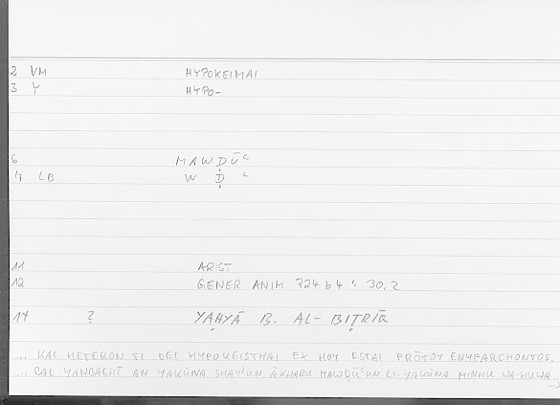 2 VM HYPOKEIMAI
3 Y HYPO-
6 MAWḌŪʿ
7 LB W Ḍ ʿ
11 ARIST
12 GENER ANIM 724 b 4 : 30,2
17 ? YAḤYĀ B. AL-BIṬRĪQ
... KAI HETERON TI DEI HYPOKEISTHAI EX HOY ESTAI PRŌTOY ENYPARCHONTOS.
... BAL YANBAGHĪ AN YAKŪNA SHAYʾUN ĀKHARU MAWḌŪʿUN LI-YAKŪNA MINHU WA-HUWA